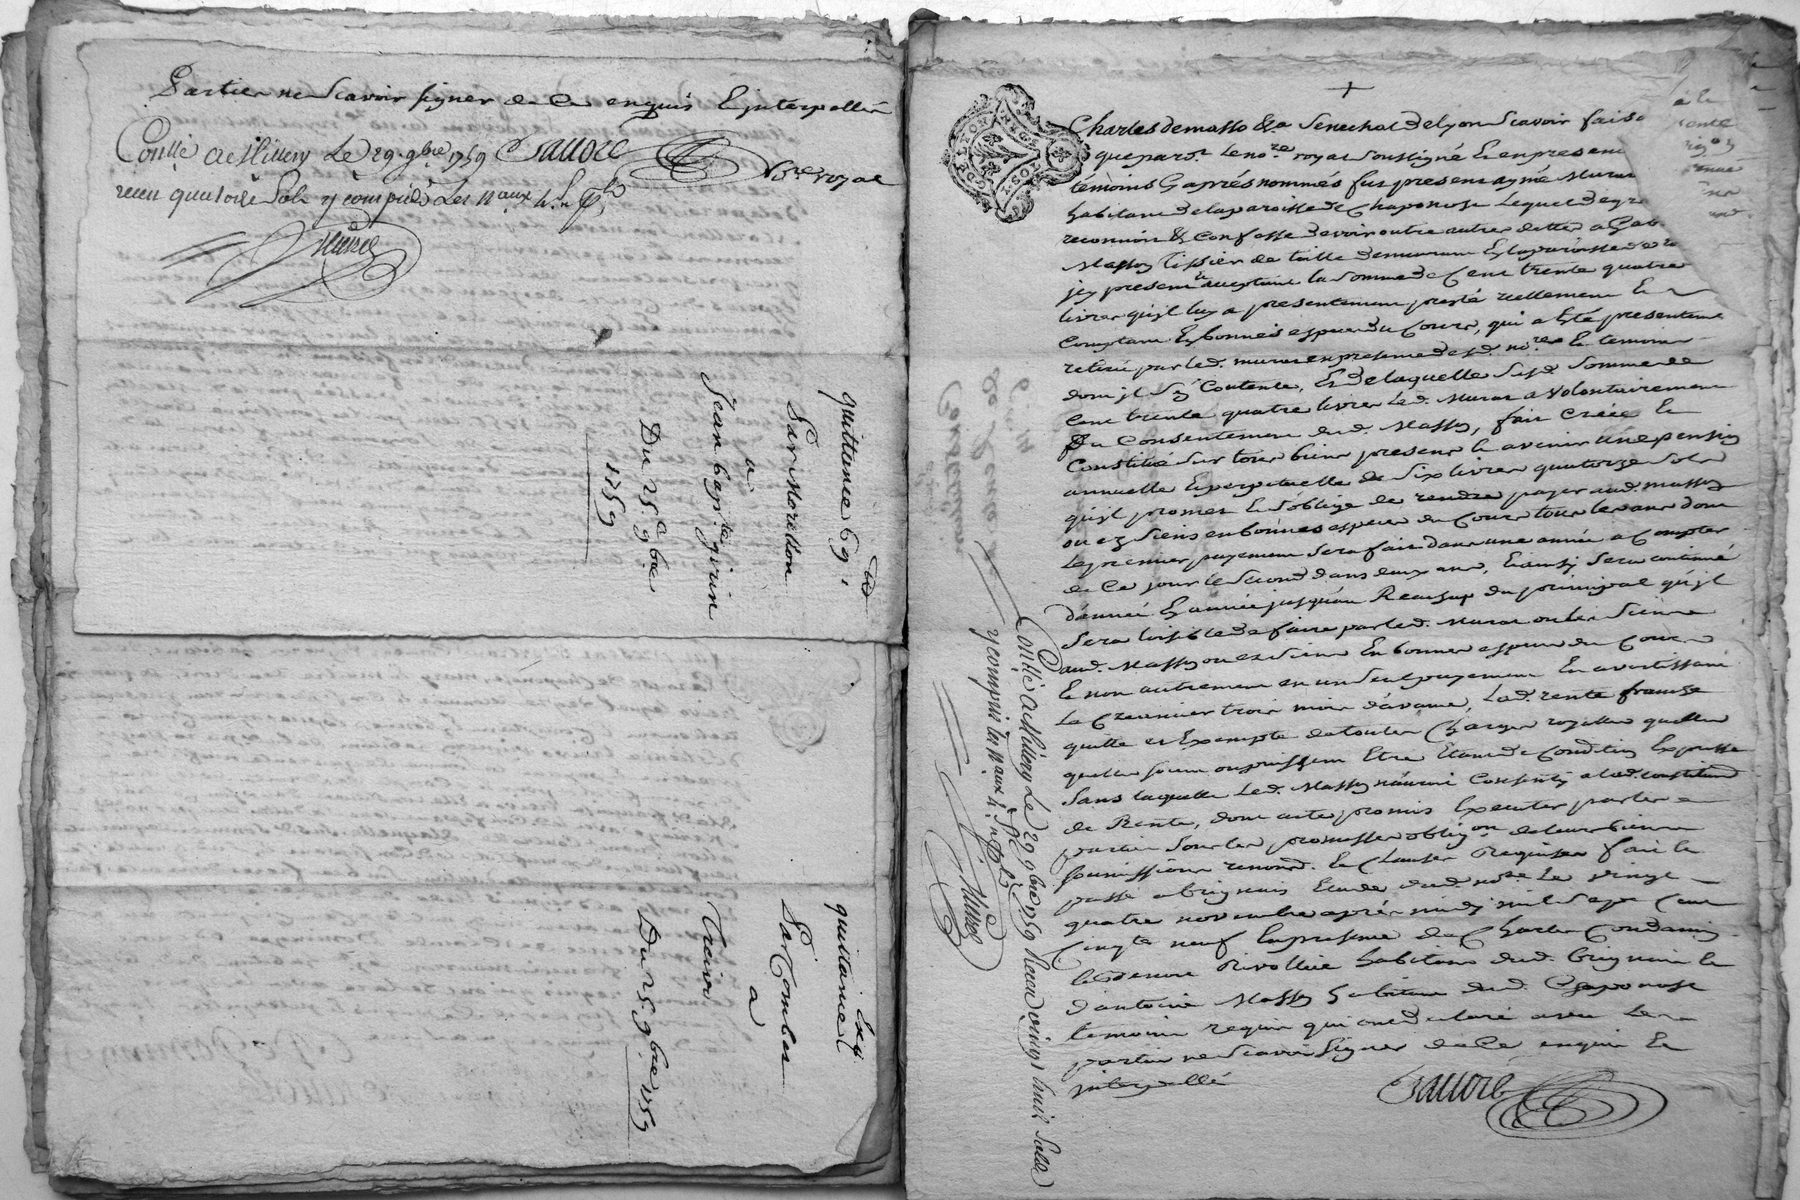 Parties ne Scavoir signer de ce enquis & interpellés
Con.llé à Millery Le 29. 9bre 1759
recu quatorze sols y compris Les
Nre royal
quittance 69:
Par Morellon
a
Jean bap.te grivin
Du 25. 9bre
1759
quittance
Par Combet
a
Treives
Du 25. 9bre 1759
+
Charles demasso &a Senechal de lyon Scavoir faisons
que par dt. le no.re royal Soussigné & en presence
témoins cy aprés nommés fut present ayné Muras
habitant de la paroisse de Chaponost Lequel de gré
reconnoit & Confesse devoir outre autres dettes a
Masson tissier de toille demeurant
jcy present acceptant la Somme de Cent trente quatre
livres qu'jl luy a presentement presté réellement &
Comptant En bonnes especes du Cours, qui a Esté presentement
retiré par led. muras en presence desd. no.re & temoins
dont jl S'en Contente, & de laquelle Susd. Somme de
Cent trente quatre livres Led. Muras a Volontairement
du Consentement dud. Masson, fait Créé &
Constitué Sur tous biens presens & avenir une pension
annuelle & perpetuelle de Six livres quatorze Sols
qu'jl promet & S'oblige de rendre payer aud. masson
ou ez Siens en bonnes especes du Cours tous les ans dont
Le premier payement Sera fait dans une année a Compter
de Ce jour le Second dans deux ans, & ainsy Sera continué
d'année En année jusqu'au Reachapt du principal qu'jl
Sera loisible de faire par led. Muras ou les Siens
aud. Masson ou ez Siens En bonnes especes du Cours
& non autrement en un Seul payement En avertissant
Le Creancier trois mois d'avance, Lad. rente franche
quitte et Exempte de toutes Charges royalles quelles
quelles soient ou puissent Etre Etant de Condition Expresse
Sans laquelle Led. Masson n'auroit Consenty a lad. constitution
de Rente, dont acte promis Executer par les
parties Sous les promesses oblig.on de leurs biens
Soumissions renond. & Clauses Requises fait &
passé a brignais Etude dud. no.re Le Vingt
quatre novembre aprés midy mil Sept Cent
Cinq.te neuf En presence de Charles Condamin
habitans dud. brignais &
d'antoine Masson habitant dud. Chaponost
temoins requis qui ont declaré avec Les
parties ne Scavoir Signer de Ce enquis &
interpellés
Con.llé à Millery Le 29 9bre 1759 Recu vingt huit Sols
y compris